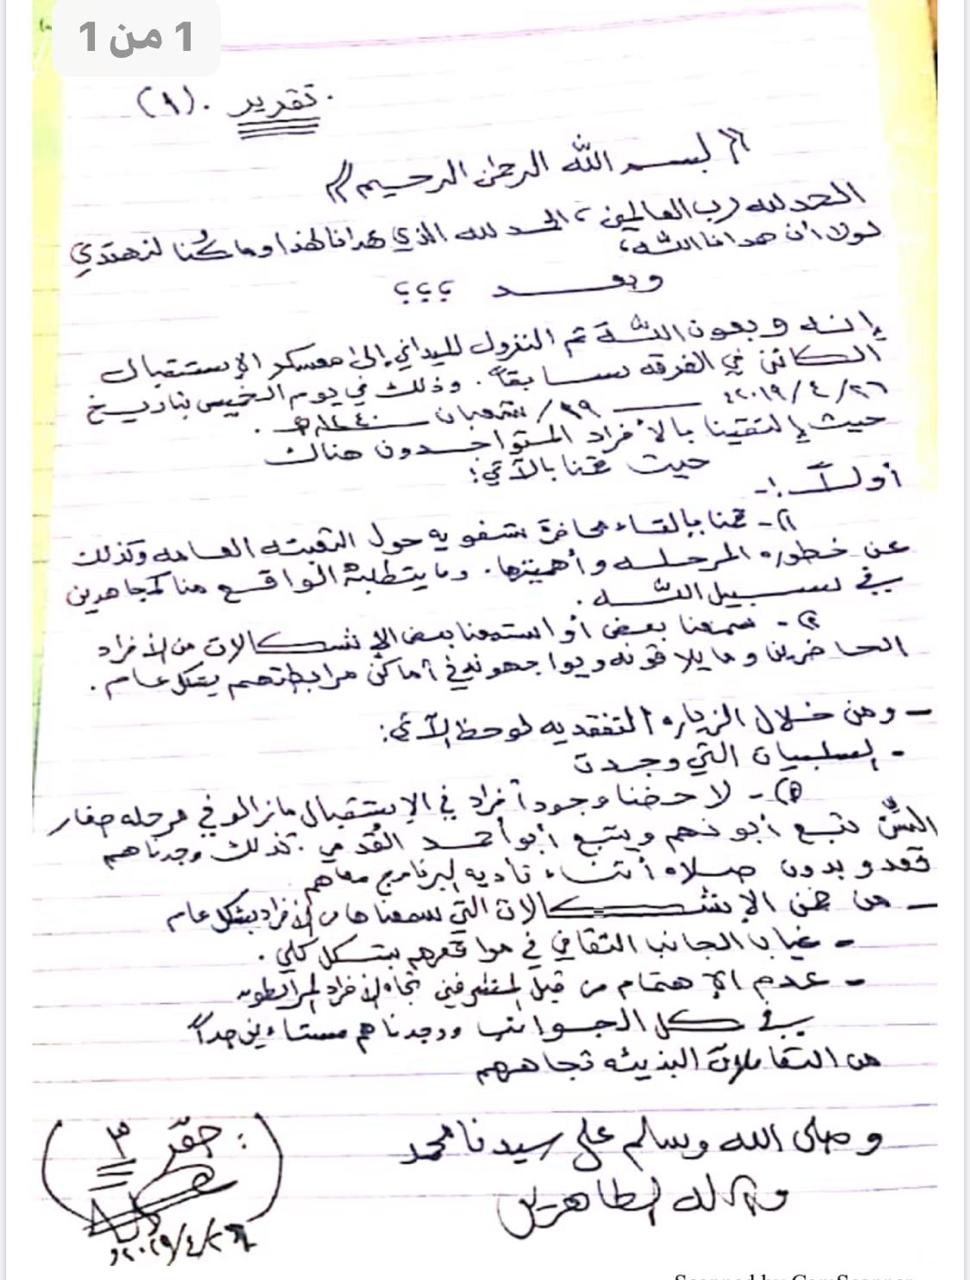 1 من 1
تقرير . (١)
《 بسم الله الرحمن الرحيم 》
الحمد لله رب العالمين ، الحمد لله الذي هدانا لهذا وما كنا لنهتدي
لولا أن هدانا الله ،
وبعد ؛؛؛
إنه وبعون الله تم النزول الميداني إلى معسكر الإستقبال
الكائن في الفرقه سابقاً . وذلك في يوم الخميس بتاريخ
٢٠١٩/٤/٢٦ ـــ ٢٩/ شعبان ١٤٤٠هـ .
حيث إلتقينا بالأفراد المتواجدون هناك
حيث قمنا بالآتي :
أولاً :-
١- قمنا بإلقاء محاضرة شفويه حول التعبئه العامه وكذلك
عن خطوره المرحله وأهميتها . وما يتطلبة الواقع منا كمجاهدين
في سبيل الله .
٢- سمعنا بعض أو استمعنا بعض الإشكالات من الأفراد
الحاضرين وما يلاقونه ويواجهونه في أماكن مرابطتهم بشكل عام .
- ومن خلال الزياره التفقديه لوحظ الآتي :
- السلبيات التي وجدت
١- لاحضنا وجود أفراد في الإستقبال مازالو في مرحله صغار
السن تبع أبو نهم ويتبع أبو أحمد القدمي . كذلك وجدناهم
قعدو بدون صلاه أثناء تاديه البرنامج معاهم
- من ضمن الإشكالات التي سمعناها من الأفراد بشكل عام
- غياب الجانب الثقافي في مواقعهم بشكل كلي .
- عدم الإهتمام من قبل المشرفين تجاه الأفراد المرابطون
في كل الجوانب ووجدناهم مستاءين جداً
من التعاملات البذيئه تجاههم
وصلى الله وسلم على سيدنا محمد
وآله الطاهرين